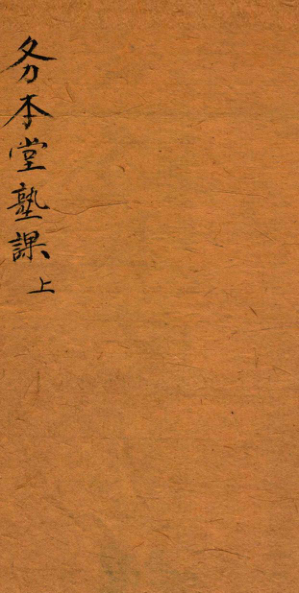 务本堂塾課上